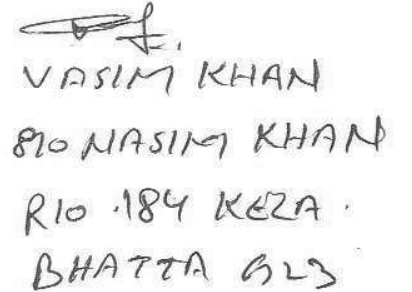 VASIM KHAN
S/o NASIM KHAN
R/o .184 KEZA.
BHATTA GZB